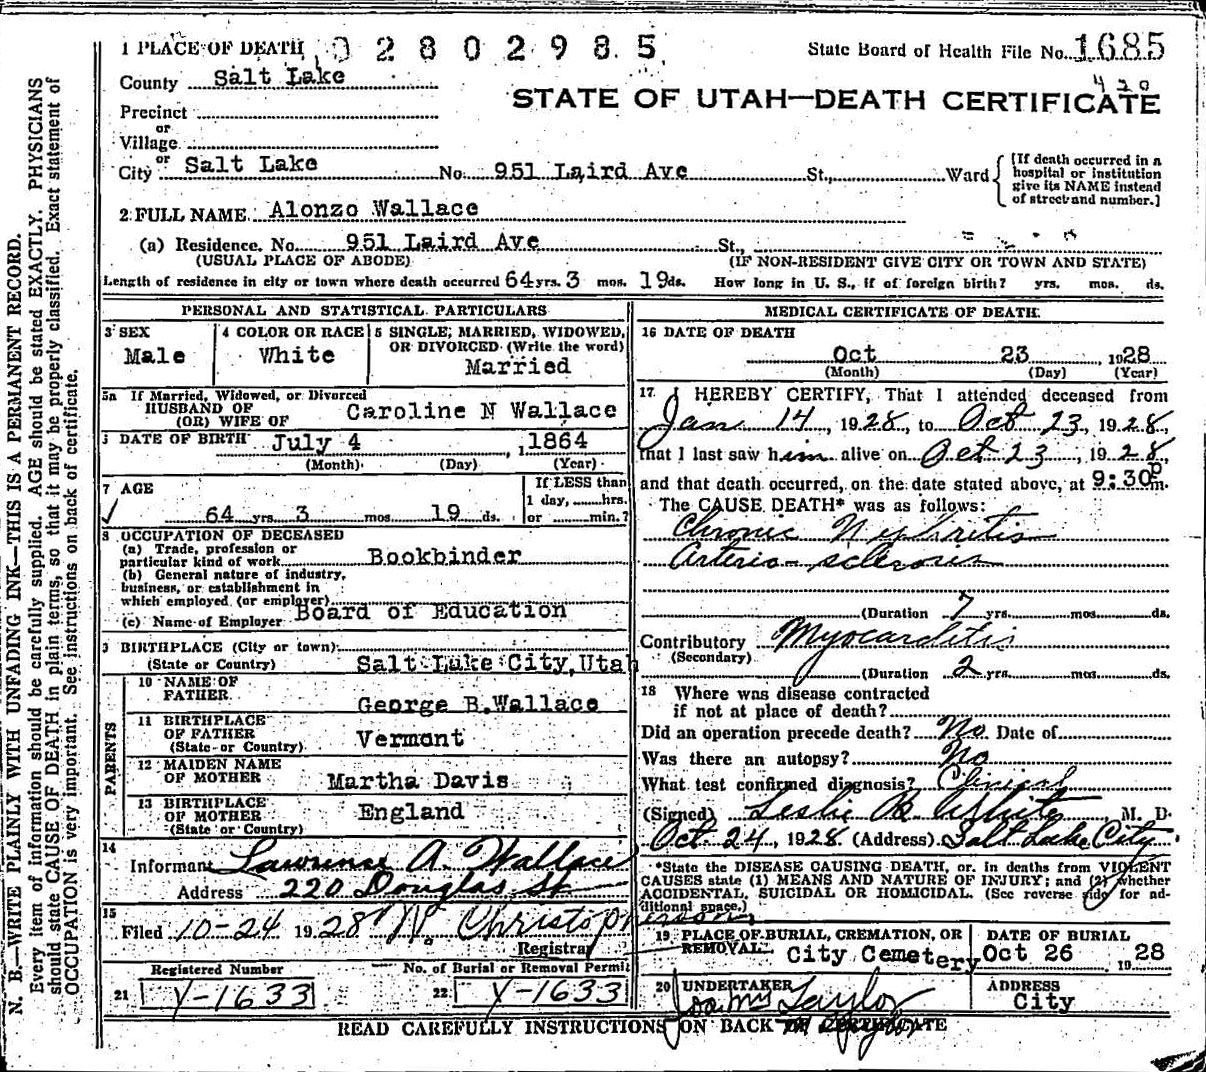 N. B.—WRITE PLAINLY WITH UNFADING INK—THIS IS A PERMANENT RECORD.
Every item of information should be carefully supplied. AGE should be stated EXACTLY. PHYSICIANS
should state CAUSE OF DEATH in plain terms, so that it may be properly classified. Exact statement of
OCCUPATION is very important. See instructions on back of certificate.
1 PLACE OF DEATH 02802985 State Board of Health File No. 1685
County Salt Lake 420
STATE OF UTAH—DEATH CERTIFICATE
Precinct
or
Village
or
City Salt Lake No. 951 Laird Ave St., Ward
{If death occurred in a
hospital or institution
give its NAME instead
of street and number.]
2 FULL NAME Alonzo Wallace
(a) Residence. No. 951 Laird Ave St.,
(USUAL PLACE OF ABODE) (IF NON-RESIDENT GIVE CITY OR TOWN AND STATE)
Length of residence in city or town where death occurred 64 yrs. 3 mos. 19 ds. How long in U. S., if of foreign birth? yrs. mos. ds.
PERSONAL AND STATISTICAL PARTICULARS
3 SEX
Male
4 COLOR OR RACE
White
5 SINGLE, MARRIED, WIDOWED,
OR DIVORCED (Write the word)
Married
5a If Married, Widowed, or Divorced
HUSBAND OF
(OR) WIFE OF Caroline N Wallace
DATE OF BIRTH July 4, 1864
(Month) (Day) (Year)
7 AGE
64 yrs 3 mos 19 ds.
If LESS than
1 day, hrs.
or min.?
8 OCCUPATION OF DECEASED
(a) Trade, profession or
particular kind of work Bookbinder
(b) General nature of industry,
business, or establishment in
which employed (or employer)
(c) Name of Employer Board of Education
9 BIRTHPLACE (City or town)
(State or Country) Salt Lake City, Utah
PARENTS
10 NAME OF
FATHER George B. Wallace
11 BIRTHPLACE
OF FATHER
(State or Country) Vermont
12 MAIDEN NAME
OF MOTHER Martha Davis
13 BIRTHPLACE
OF MOTHER
(State or Country) England
14
Informant Lawrence A. Wallace
Address 220 Douglas St
15
Filed 10-24 1928 W. Christopherson
Registrar
Registered Number
21 Y-1633
No. of Burial or Removal Permit
22 Y-1633
MEDICAL CERTIFICATE OF DEATH
16 DATE OF DEATH
Oct 23 1928
(Month) (Day) (Year)
17 I HEREBY CERTIFY, That I attended deceased from
Jan 14, 1928, to Oct 23, 1928,
that I last saw him alive on Oct 23, 1928,
and that death occurred, on the date stated above, at 9:30 p m.
The CAUSE DEATH* was as follows:
Chronic Nephritis
Arterio-sclerosis
(Duration 7 yrs. mos. ds.
Contributory Myocarditis
(Secondary)
(Duration 2 yrs. mos. ds.
18 Where was disease contracted
if not at place of death?
Did an operation precede death? No. Date of
Was there an autopsy? No
What test confirmed diagnosis? Clinical
(Signed) Leslie B. White, M. D.
Oct. 24, 1928. (Address) Salt Lake City.
*State the DISEASE CAUSING DEATH, or, in deaths from VIOLENT
CAUSES state (1) MEANS AND NATURE OF INJURY; and (2) whether
ACCIDENTAL, SUICIDAL OR HOMICIDAL. (See reverse side for ad-
ditional space.)
19 PLACE OF BURIAL, CREMATION, OR
REMOVAL City Cemetery
DATE OF BURIAL
Oct 26 1928
20 UNDERTAKER
Taylor
ADDRESS
City
READ CAREFULLY INSTRUCTIONS ON BACK OF CERTIFICATE